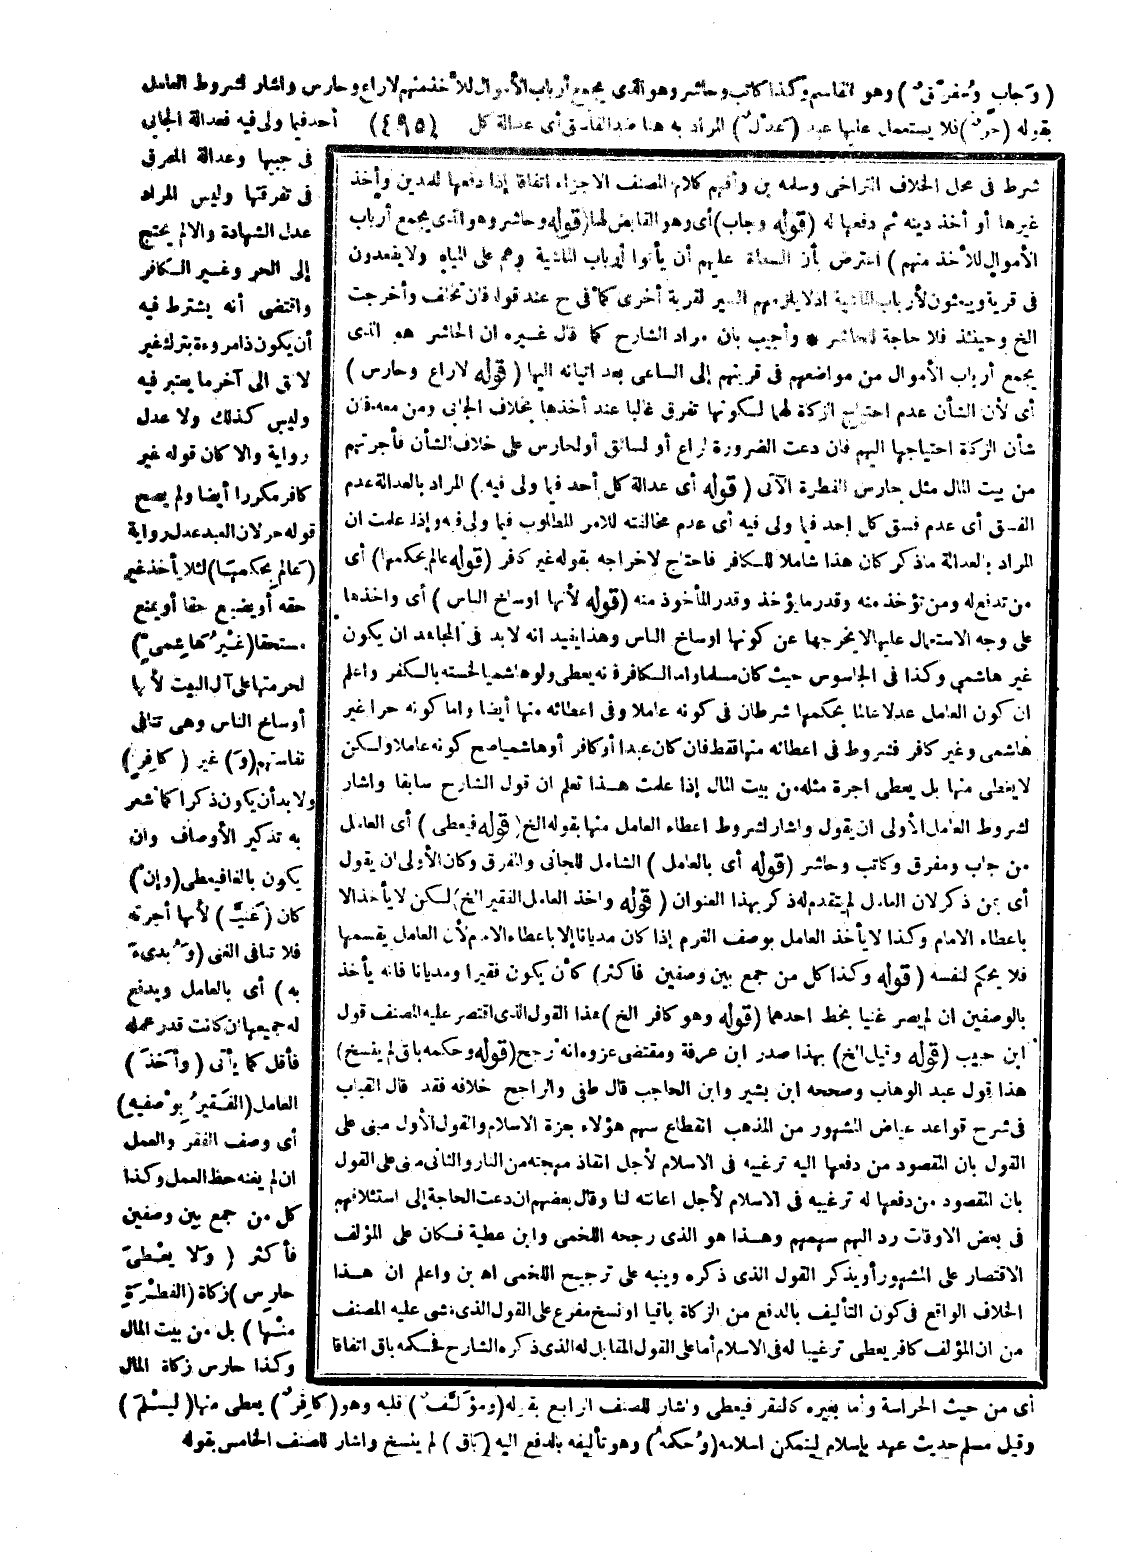 (وَجابٍ وَمُفرّقٍ) وهو القاسم وكذا كاتب وحاشر وهو الذى يجمع أرباب الأموال للأخذ منهم لا راع وحارس وأشار لشروط العامل
بقوله (حرّ) فلا يستعمل عليها عبد (عَدلٌ) المراد به هنا ضد الفاسق أى عدالة كل (٤٩٥) أحد فيما ولى فيه فعدالة الجابى
فى جبيها وعدالة المفرق
فى تفرقتها وليس المراد
عدل الشهادة والا لم يحتج
إلى الحر وغير الكافر
واقتضى أنه يشترط فيه
أن يكون ذا مروءة بترك غير
لائق الى آخر ما يعتبر فيه
وليس كذلك ولا عدل
رواية والا كان قوله غير
كافر مكررا أيضا ولم يصح
قوله حر لان العبد عدل رواية
(عَالمٍ بحكمها) لئلا يأخذ غير
حقه أو يضيع حقا أو يمنع
مستحقا (غَيْرُ هَاشِمىٍّ)
لحرمتها على آل البيت لأنها
أوساخ الناس وهى تنافى
نفاستهم (وَ) غير (كافِرٍ)
ولا بد أن يكون ذكرا كما أشعر
به تذكير الأوصاف وان
يكون بالغا فيعطى (وإن)
كان (غَنِيًّا) لأنها أجرته
فلا تنافى الغنى (وَبُدئَ
به) أى بالعامل ويدفع
له جميعها ان كانت قدر عمله
فأقل كما يأتى (وأخَذَ)
العامل (الفَقِيرُ بوَصفيهِ)
أى وصف الفقر والعمل
ان لم يغنه حظ العمل وكذا
كل من جمع بين وصفين
فأكثر (وَلا يعْطىَ
حارِس) زكاة (الفطْرَةِ
منْها) بل من بيت المال
وكذا حارس زكاة المال
شرط فى محل الخلاف التراخى وسلمه بن وأفهم كلام المصنف الاجزاء اتفاقا إذا دفعها للمدين وأخذ
غيرها أو أخذ دينه ثم دفعها له (قوله وجاب) أى وهو القابض لها (قوله وحاشر وهو الذى يجمع أرباب
الأموال للأخذ منهم) اعترض بأن السعاة عليهم أن يأتوا أرباب الماشية وهم على المياه ولا يقعدون
فى قرية ويبعثون لأرباب الماشية اذ لا يلزمهم السير لقرية أخرى كما فى ح عند قوله فان تخالف وأخرجت
الخ وحينئذ فلا حاجة للحاشر * وأجيب بان مراد الشارح كما قال غيره ان الحاشر هو الذى
يجمع أرباب الأموال من مواضعهم فى قريتهم إلى الساعى بعد اتيانه اليها (قوله لا راع وحارس)
أى لأن الشأن عدم احتياج الزكاة لهما لكونها تفرق غالبا عند أخذها بخلاف الجابى ومن معه فان
شأن الزكاة احتياجها اليهم فان دعت الضرورة لراع أو لسائق أو لحارس على خلاف الشأن فأجرتهم
من بيت المال مثل حارس الفطرة الآتى (قوله أى عدالة كل أحد فيما ولى فيه) المراد بالعدالة عدم
الفسق أى عدم فسق كل احد فيما ولى فيه أى عدم مخالفته للامر المطلوب فيما ولى فيه وإذا علمت ان
المراد بالعدالة ماذكر كان هذا شاملا للكافر فاحتاج لاخراجه بقوله غير كافر (قوله عالم بحكمها) أى
من تدفع له ومن تؤخذ منه وقدر ما يؤخذ وقدر المأخوذ منه (قوله لأنها اوساخ الناس) أى واخذها
على وجه الاستعمال عليها لا يخرجها عن كونها اوساخ الناس وهذا يفيد انه لا بد فى المجاهد ان يكون
غير هاشمى وكذا فى الجاسوس حيث كان مسلما واما الكافر فانه يعطى ولو هاشميا لخسته بالكفر واعلم
ان كون العامل عدلا عالما بحكمها شرطان فى كونه عاملا وفى اعطائه منها أيضا واما كونه حرا غير
هاشمى وغير كافر فشروط فى اعطائه منها فقط فان كان عبدا أو كافر أو هاشميا صح كونه عاملا ولكن
لا يعطى منها بل يعطى اجرة مثله من بيت المال إذا علمت هذا تعلم ان قول الشارح سابقا واشار
لشروط العامل الأولى ان يقول واشار لشروط اعطاء العامل منها بقوله الخ (قوله فيعطى) أى العامل
من جاب ومفرق وكاتب وحاشر (قوله أى بالعامل) الشامل للجابى والمفرق وكان الأولى ان يقول
أى بمن ذكر لان العامل لم يتقدم له ذكر بهذا العنوان (قوله واخذ العامل الفقير الخ) لكن لا يأخذ الا
باعطاء الامام وكذا لا يأخذ العامل بوصف الغرم إذا كان مديانا إلا باعطاء الامام لأن العامل يقسمها
فلا يحكم لنفسه (قوله وكذا كل من جمع بين وصفين فاكثر) كأن يكون فقيرا ومديانا فانه يأخذ
بالوصفين ان لم يصر غنيا بخط احدهما (قوله وهو كافر الخ) هذا القول الذى اقتصر عليه المصنف قول
ابن حبيب (قوله وقيل الخ) بهذا صدر ابن عرفة ومقتضى عزوه انه ارجح (قوله وحكمه باق لم ينسخ)
هذا قول عبد الوهاب وصححه ابن بشير وابن الحاجب قال طفى والراجح خلافه فقد قال القباب
فى شرح قواعد عياض المشهور من المذهب انقطاع سهم هؤلاء بعزة الاسلام والقول الأول مبنى على
القول بان المقصود من دفعها اليه ترغيبه فى الاسلام لأجل انقاذ مهجته من النار والثانى مبنى على القول
بان المقصود من دفعها له ترغيبه فى الاسلام لأجل اعانته لنا وقال بعضهم ان دعت الحاجة إلى استئلافهم
فى بعض الاوقات رد اليهم سهمهم وهذا هو الذى رجحه اللخمى وابن عطية فكان على المؤلف
الاقتصار على المشهور أو يذكر القول الذى ذكره وينبه على ترجيح اللخمى اه بن واعلم ان هذا
الخلاف الواقع فى كون التأليف بالدفع من الزكاة باقيا او نسخ مفرع على القول الذى مشى عليه المصنف
من ان المؤلف كافر يعطى ترغيبا له فى الاسلام أما على القول المقابل له الذى ذكره الشارح فحكمه باق اتفاقا
أى من حيث الحراسة وأما بغيره كالفقر فيعطى واشار للصنف الرابع بقوله (ومؤَلّفٌ) قلبه وهو (كافِرٌ) يعطى منها (ليسْلمَ)
وقيل مسلم حديث عهد بإسلام ليتمكن اسلامه (وَحُكمهُ) وهو تأليفه بالدفع اليه (باق) لم ينسخ واشار للصنف الخامس بقوله